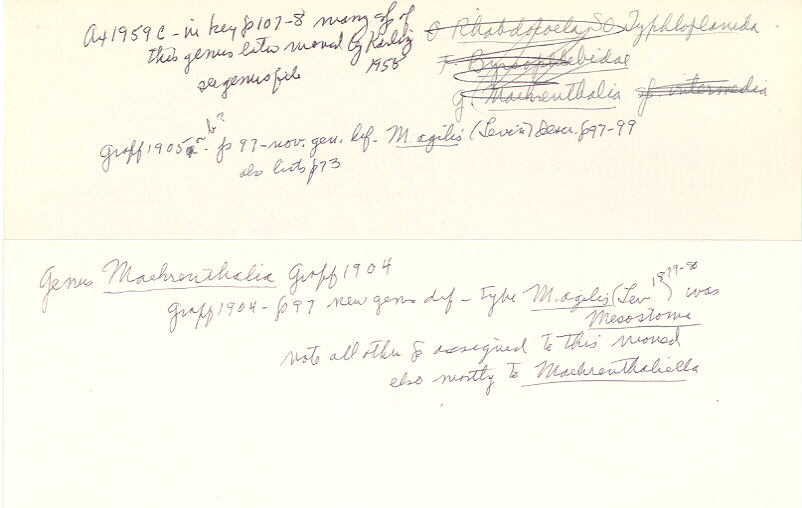 Ax 1959c - in key p107-8 many sp of
this genus later moved by Karling
1953
see genus file
O Rhabdocoela SO Typhloplanida
F. Byrsophlebidae
G. Maehrenthalia sp intermedia
Graff 1905a or b? p 97 - nov. gen. def. M. agilis (Levin) descr. p97-99
also lists p73
Genus Maehrenthalia Graff 1904
Graff 1904 - p97 new genus def - Type M. agilis (Lev 1879-80) was
Mesostoma
note all other sp assigned to this moved
else mostly to Maehrenthaliella